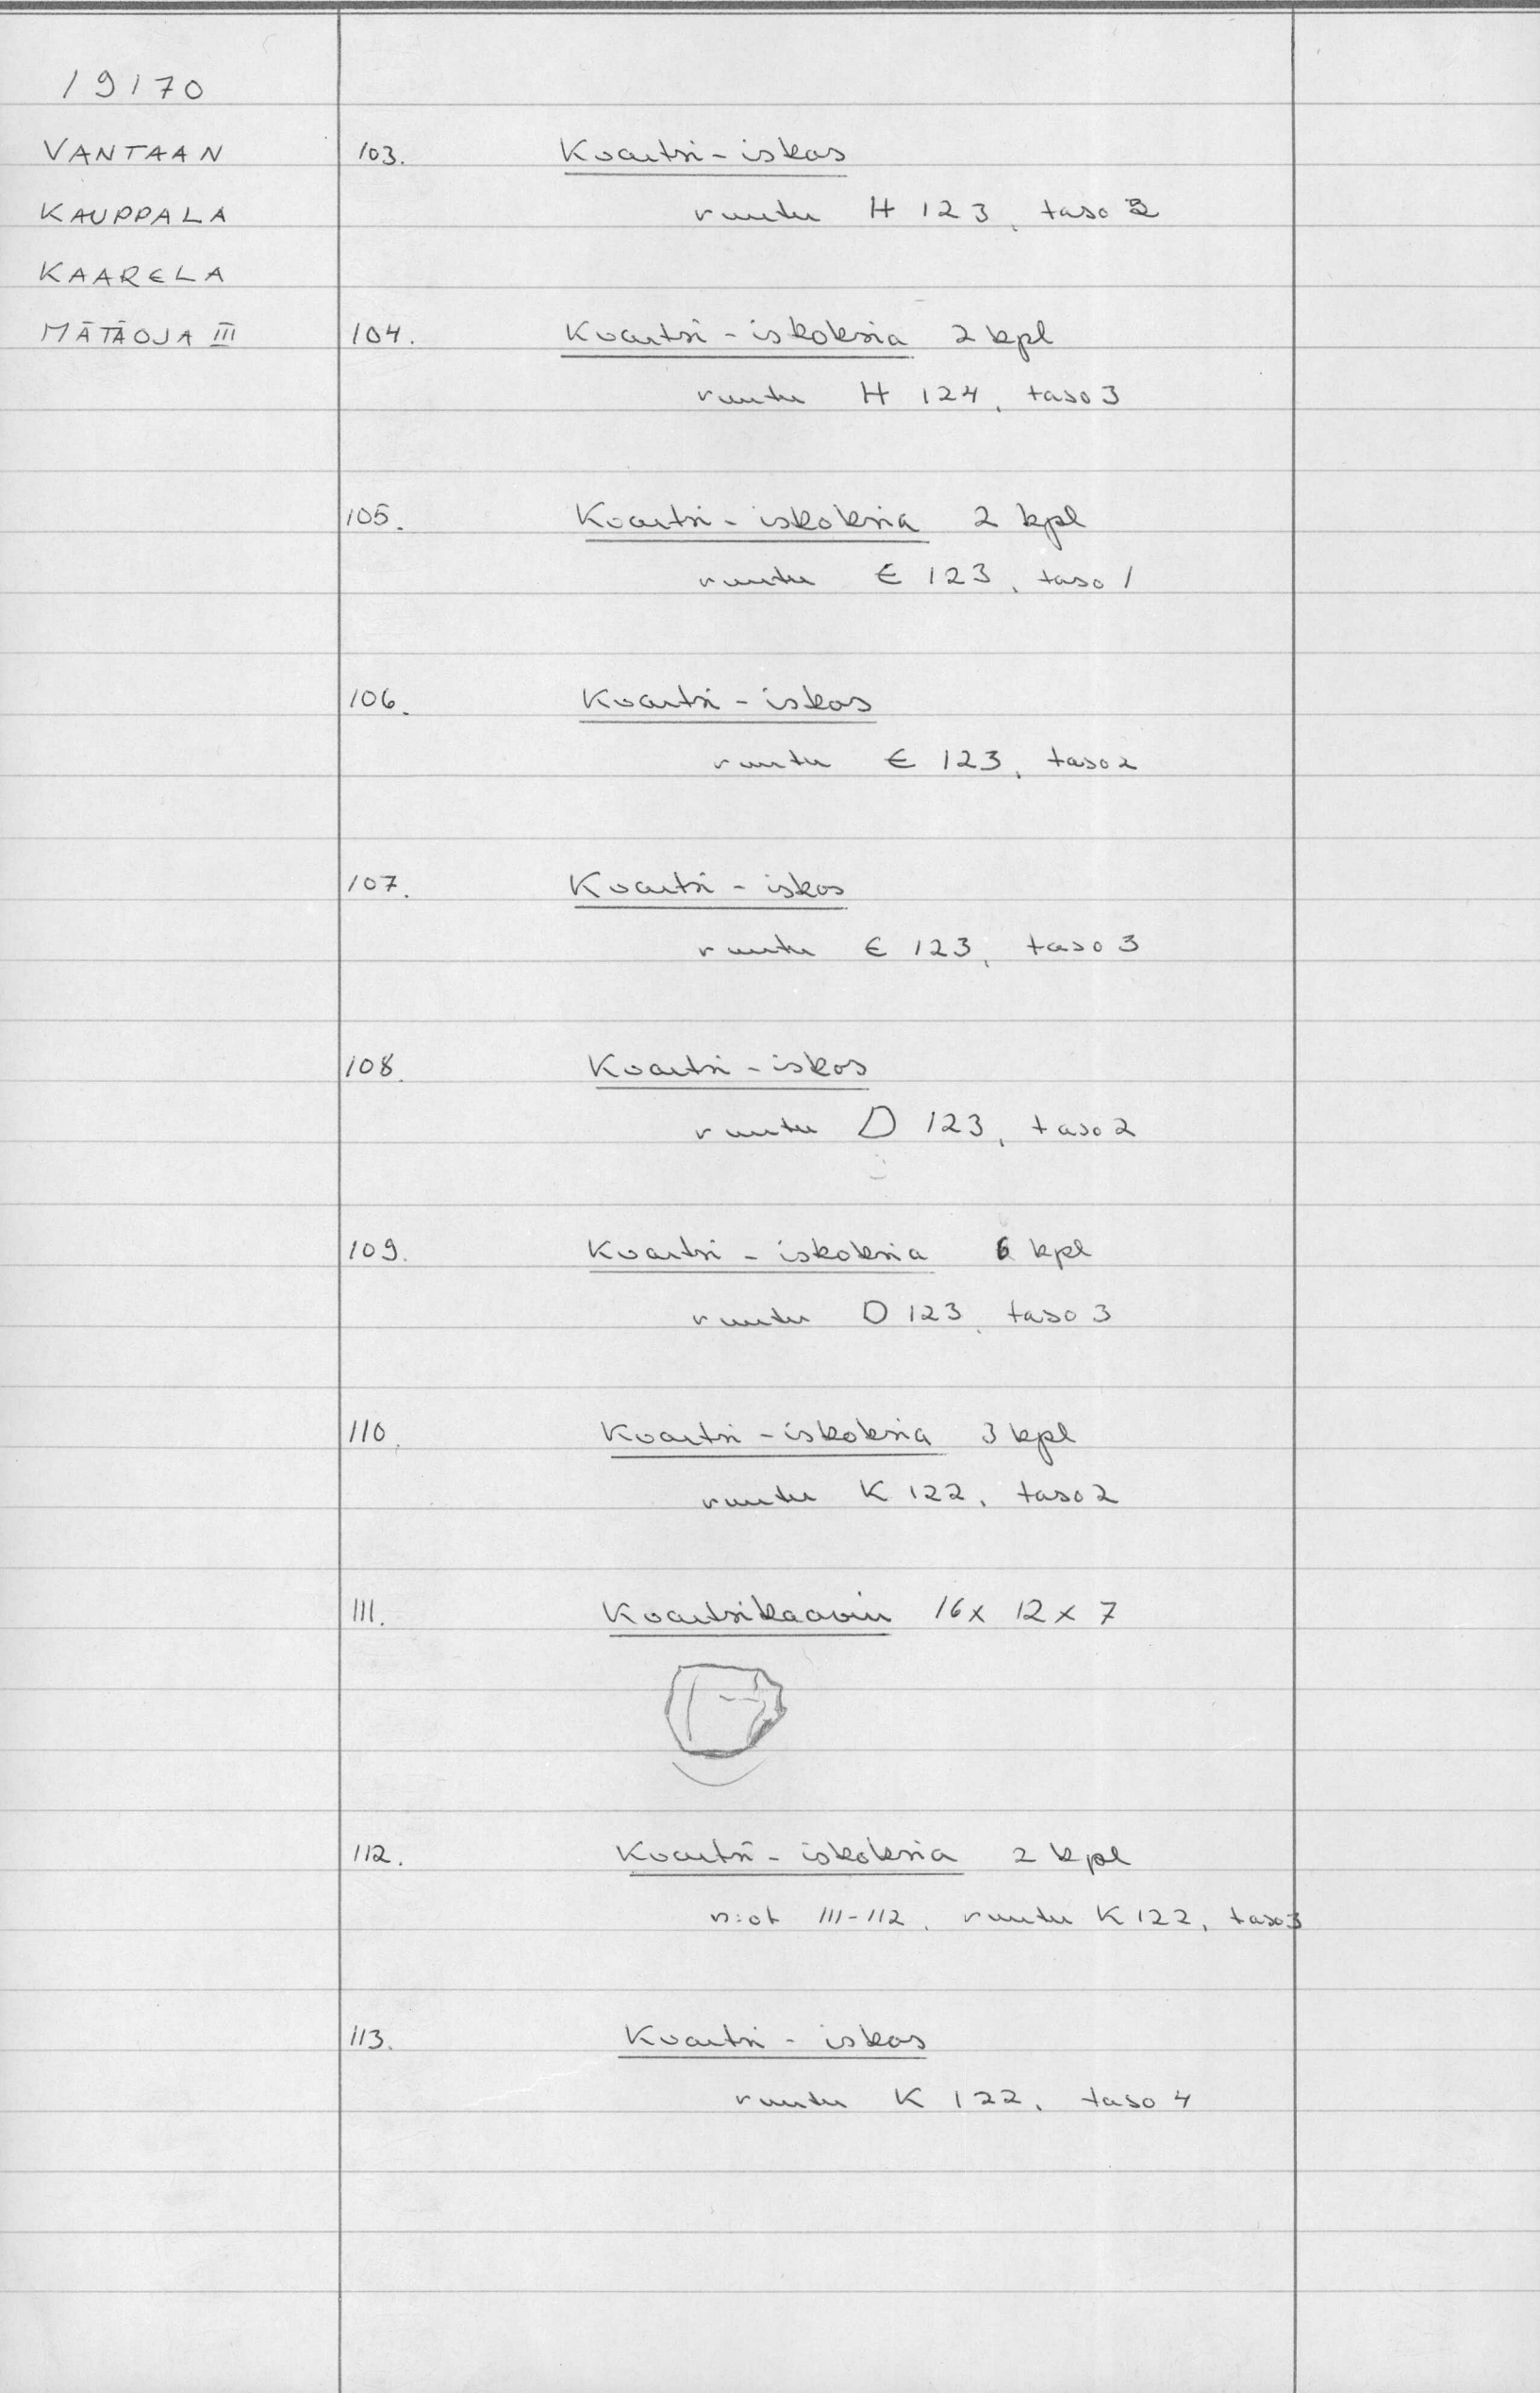 19170
VANTAAN
KAUPPALA
KAARELA
MÄTÄOJA III
103. Kvartsi-iskos
ruutu H 123, taso
104. Kvartsi-iskoksia 2 kpl
ruutu H 124, taso 3
105. Kvartsi-iskoksia 2 kpl
ruutu E 123, taso 1
106. Kvartsi-iskos
ruutu E 123, taso 2
107. Kvartsi-iskos
ruutu E 123, taso 3
108. Kvartsi-iskos
ruutu D 123, taso 2
109. Kvartsi-iskoksia 6 kpl
ruutu D 123, taso 3
110. Kvartsi-iskoksia 3 kpl
ruutu K 122, taso 2
111. Kvartsikaavin 16 x 12 x 7
112. Kvartsi-iskoksia 2 kpl
n:ot 111-112, ruutu K 122, taso 3
113. Kvartsi-iskos
ruutu K 122, taso 4